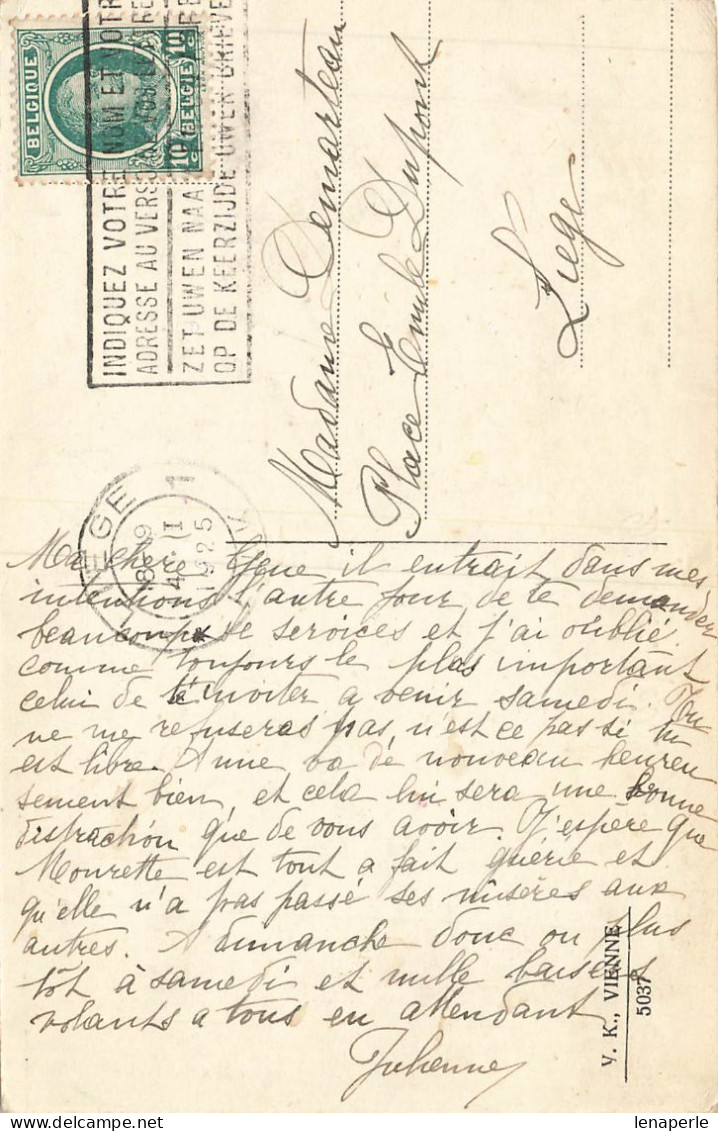 BELGIQUE
10 c
10 c
BELGIË
INDIQUEZ VOTRE NOM ET VOTRE
ADRESSE AU VERS
ZET UWEN NAA
OP DE KEERZIJDE UWER BRIEVE
Madame Demarteau
Place Emile Dupont
Liège
1
4 I
1925
Ma chère il entrait dans mes
intentions l'autre jour de te demander
beaucoup de services et j'ai oublié
comme toujours le plus important
celui de t'inviter a venir samedi. Tu
ne me refuseras pas, n'est ce pas si tu
est libre. Anne va de nouveau heureu
sement bien, et cela lui sera une bonne
distraction que de vous avoir. J'espère que
Mourette est tout a fait guérie et
qu'elle n'a pas passé ses misères aux
autres. A dimanche donc ou plus
tôt à samedi et mille baisers
volants a tous en attendant
Julienne
V. K., VIENNE
5037
lenaperle